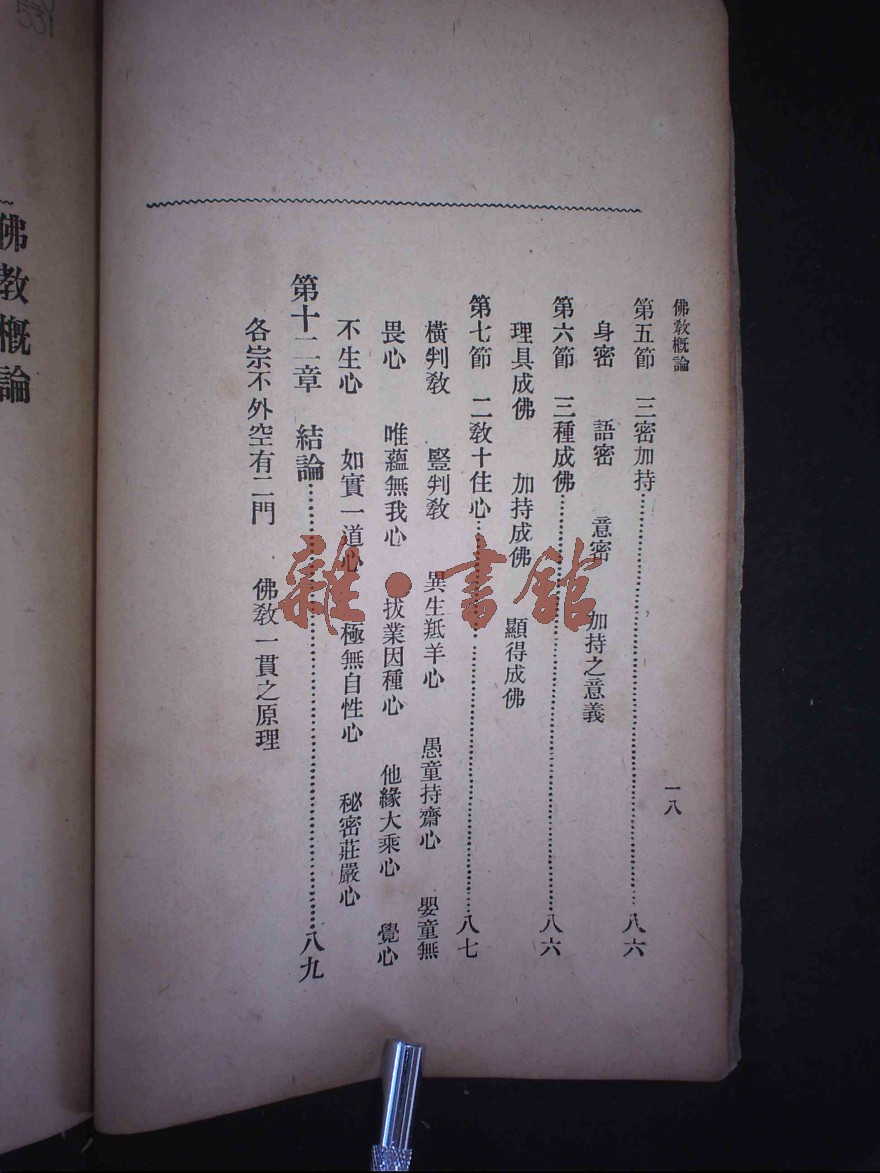 佛教概論
一八
第五節　三密加持……八六
身密　語密　意密　加持之意義
第六節　三種成佛……八六
理具成佛　加持成佛　顯得成佛
第七節　二教十住心……八七
橫判教　豎判教　異生羝羊心　愚童持齋心　嬰童無
畏心　唯蘊無我心　拔業因種心　他緣大乘心　覺心
不生心　如實一道心　極無自性心　秘密莊嚴心
第十二章　結論……八九
各宗不外空有二門　佛教一貫之原理
雜·書館
佛教概論